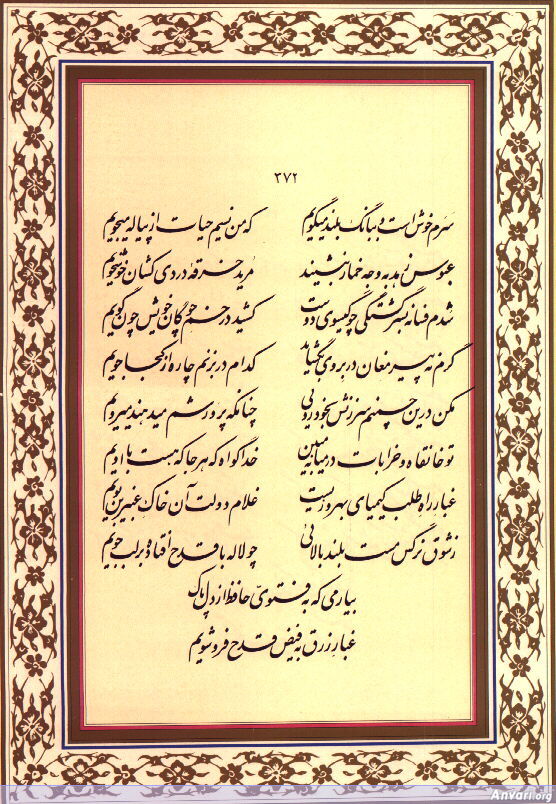 ۳۷۲
سرم خوش است و ببانگ بلند میگویم که من نسیم حیات از پیاله میجویم
عبوس زهد به وجه خمار ننشیند مرید خرقه دردی کشان خوشخویم
شدم فسانه بسرگشتگی چو گیسوی دوست کشید در خم چوگان خویش چون گویم
گرم نه پیر مغان در بروی بگشاید کدام در بزنم چاره از کجا جویم
مکن درین چمنم سرزنش بخودرویی چنانکه پرورشم میدهند میرویم
تو خانقاه و خرابات در میانه مبین خدا گواه که هر جا که هست با اویم
غبار راه طلب کیمیای بهروزیست غلام دولت آن خاک عنبرین بویم
ز شوق نرگس مست بلند بالائی چو لاله با قدح افتاده بر لب جویم
بیار می که به فتوی حافظ از دل پاک
غبار زرق به فیض قدح فرو شویم
Anvari.org